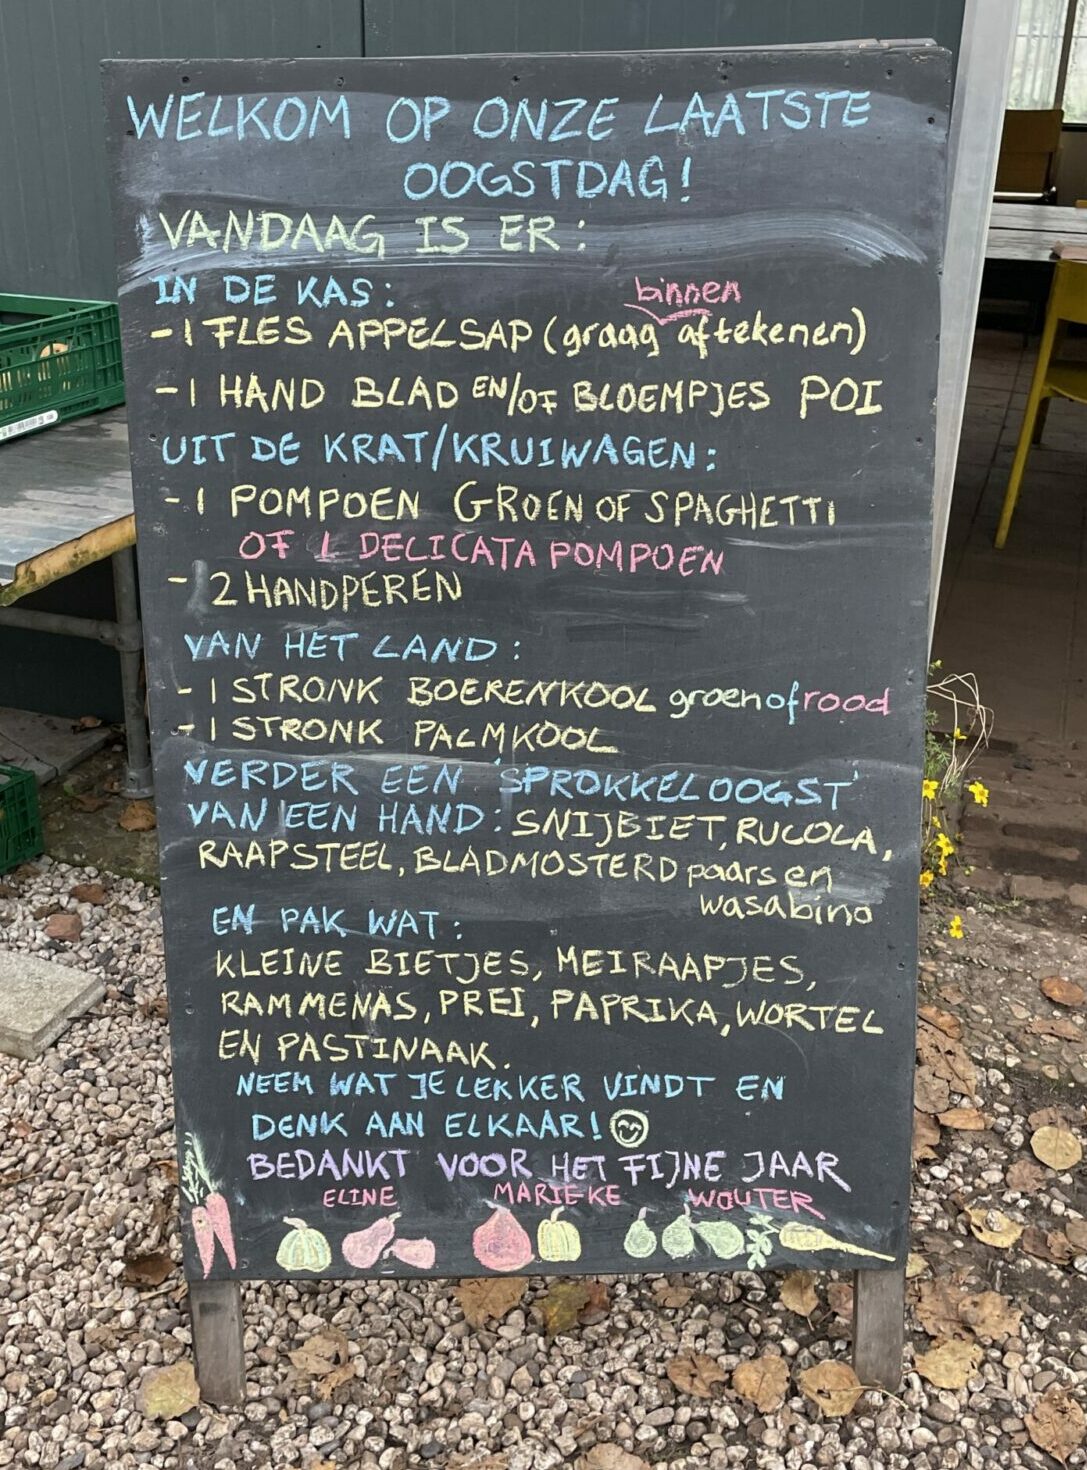 WELKOM OP ONZE LAATSTE
OOGSTDAG!
VANDAAG IS ER:
IN DE KAS:
binnen
- 1 FLES APPELSAP (graag aftekenen)
- 1 HAND BLAD EN/OF BLOEMPJES POI
UIT DE KRAT/KRUIWAGEN:
- 1 POMPOEN GROEN OF SPAGHETTI
OF 1 DELICATA POMPOEN
- 2 HANDPEREN
VAN HET LAND:
- 1 STRONK BOERENKOOL groen of rood
- 1 STRONK PALMKOOL
VERDER EEN 'SPROKKELOOGST'
VAN EEN HAND: SNIJBIET, RUCOLA,
RAAPSTEEL, BLADMOSTERD paars en
wasabino
EN PAK WAT:
KLEINE BIETJES, MEIRAAPJES,
RAMMENAS, PREI, PAPRIKA, WORTEL
EN PASTINAAK.
NEEM WAT JE LEKKER VINDT EN
DENK AAN ELKAAR!
BEDANKT VOOR HET FIJNE JAAR
ELINE MARIEKE WOUTER